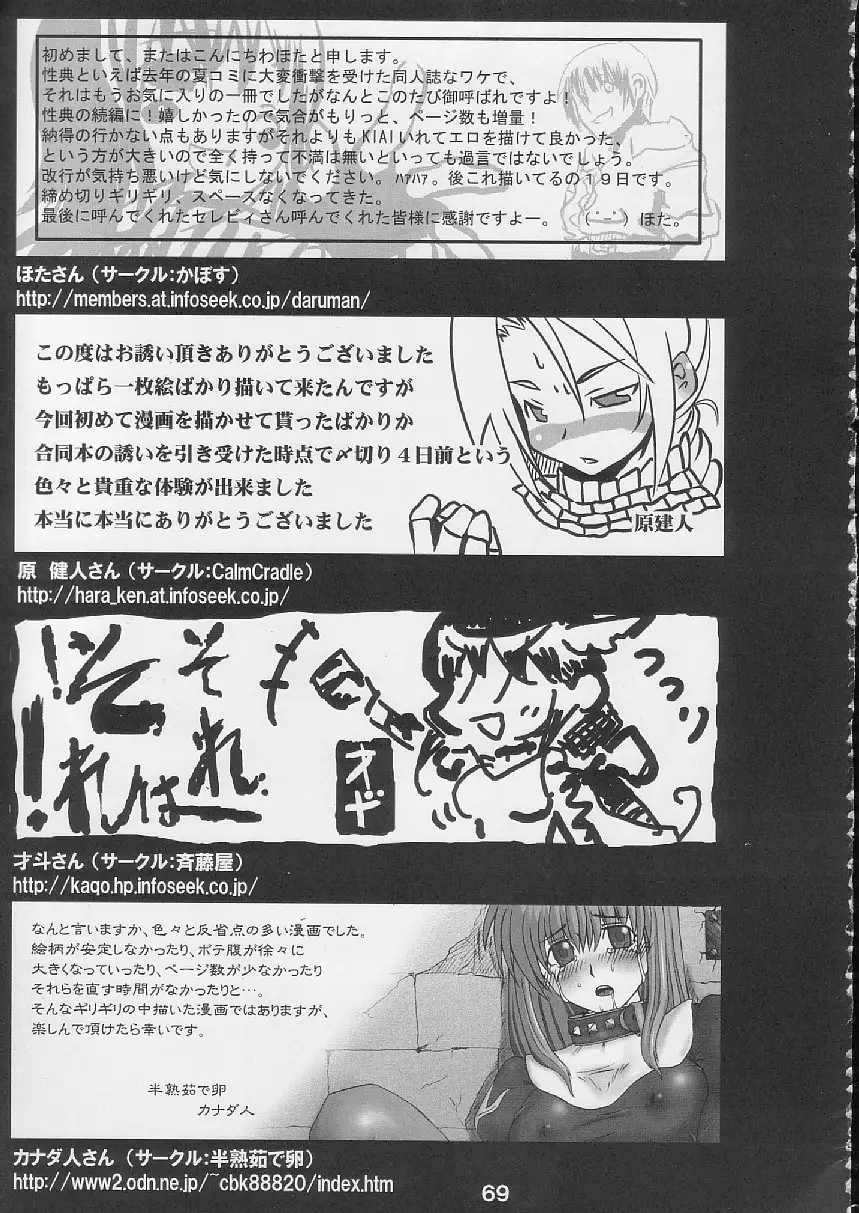 初めまして、またはこんにちわほたと申します。
性典といえば去年の夏コミに大変衝撃を受けた同人誌なワケで、
それはもうお気に入りの一冊でしたがなんとこのたび御呼ばれですよ！
性典の続編に！嬉しかったので気合がもりっと、ページ数も増量！
納得の行かない点もありますがそれよりもKIAIいれてエロを描けて良かった、
という方が大きいので全く持って不満は無いといっても過言ではないでしょう。
改行が気持ち悪いけど気にしないでください。ﾊｧﾊｧ。後これ描いてるの１９日です。
締め切りギリギリ、スペースなくなってきた。
最後に呼んでくれたセレビィさん呼んでくれた皆様に感謝ですよー。　（˙ー˙）ほた。
ほたさん（サークル:かぼす）
http://members.at.infoseek.co.jp/daruman/
この度はお誘い頂きありがとうございました
もっぱら一枚絵ばかり描いて来たんですが
今回初めて漫画を描かせて貰ったばかりか
合同本の誘いを引き受けた時点で〆切り４日前という
色々と貴重な体験が出来ました
本当に本当にありがとうございました
原建人
原　健人さん（サークル:CalmCradle）
http://hara_ken.at.infoseek.co.jp/
そ
それ
それは
れ
！
！！
つつり
才ド
才斗さん（サークル:斉藤屋）
http://kaqo.hp.infoseek.co.jp/
なんと言いますか、色々と反省点の多い漫画でした。
絵柄が安定しなかったり、ボテ腹が徐々に
大きくなっていったり、ページ数が少なかったり
それらを直す時間がなかったりと…。
そんなギリギリの中描いた漫画ではありますが、
楽しんで頂けたら幸いです。
半熟茹で卵
カナダ人
カナダ人さん（サークル:半熟茹で卵）
http://www2.odn.ne.jp/~cbk88820/index.htm
69